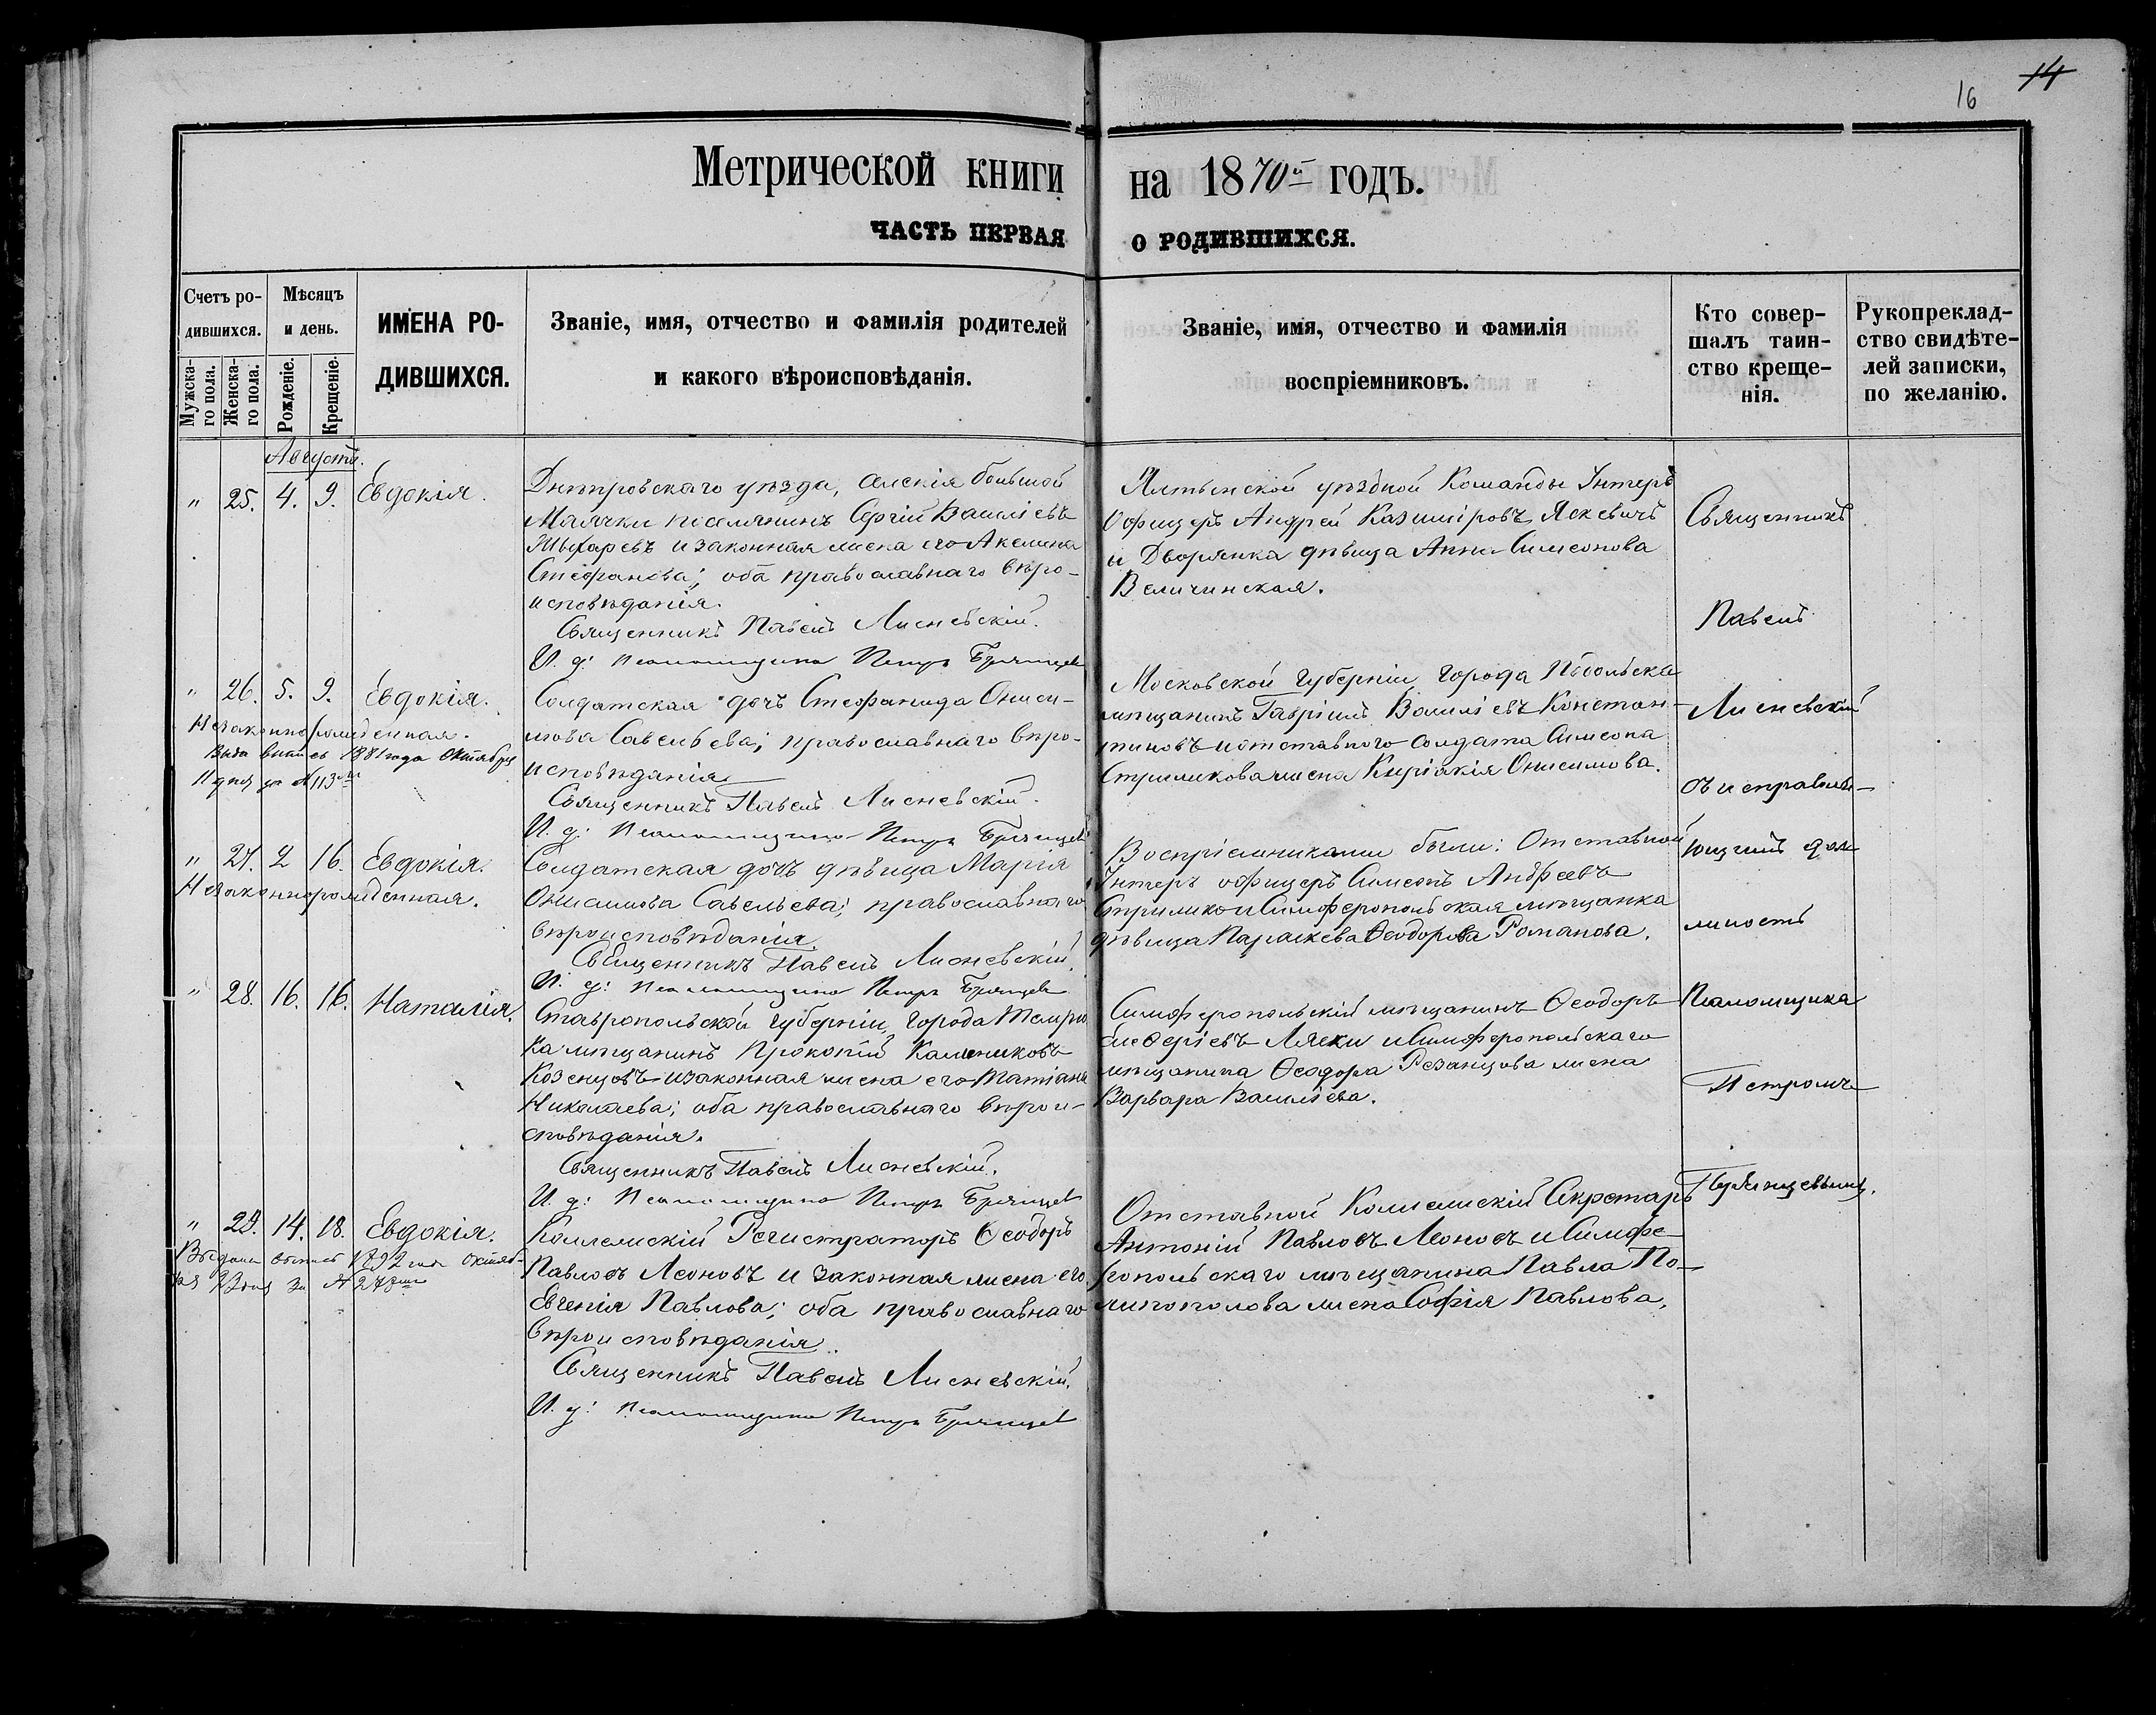 16 14
Метрической книги на 1870й годъ.
ЧАСТЬ ПЕРВАЯ О РОДИВШИХСЯ.
Счетъ ро-
дившихся.
Мужска-
го пола.
Женска-
го пола.
Мѣсяцъ
и день.
Рожденіе.
Крещеніе.
ИМЕНА РО-
ДИВШИХСЯ.
Званіе, имя, отчество и фамилія родителей
и какого вѣроисповѣданія.
Званіе, имя, отчество и фамилія
воспріемниковъ.
Кто совер-
шалъ таин-
ство креще-
нія.
Рукопреклад-
ство свидѣте-
лей записки,
по желанію.
Августъ.
" 25. 4. 9. Евдокія.
Днѣпровскаго уѣзда, селенія большой
Маячки поселянинъ Сергій Василіевъ
и законная жена его Акелина
Стефанова; оба православнаго вѣро-
исповѣданія.
Священникъ Павелъ Лисневскій.
И. д: псаломщика Петръ Брянцевъ
Ялтинской уѣздной Команды Унтеръ
Офицеръ Андрей Казиміровъ Яскевичъ
и Дворянка дѣвица Анна Симеонова
Величинская.
" 26. 5. 9. Евдокія.
Незаконнорожденная.
Выда выпись 1881 года Октября
11 дня за № 113мъ
Солдатская дочъ Стефанида Ониси-
мова Савельева; православнаго вѣро-
исповѣданія
Священникъ Павелъ Лисневскій.
И. д: псаломщика Петръ Брянцевъ
Московской Губерніи города Подольска
мѣщанинъ Гавріилъ Василіевъ Констан-
тиновъ и отставнаго солдата Симеона
Стрижикова жена Киріакія Онисимова.
" 27. 2 16. Евдокія.
Незаконнорожденная.
Солдатская дочъ дѣвица Марія
Онисимова Савельева; православнаго
вѣроисповѣданія.
Священникъ Павелъ Лисневскій.
И. д: псаломщика Петръ Брянцевъ
Воспріемниками были: Отставной
Унтеръ офицеръ Симеонъ Андреевъ
и Симферопольская мѣщанка
дѣвица Параскева Ѳеодорова Романова.
" 28. 16. 16. Наталія.
Ставропольской губерніи, города Темрю
ка мѣщанинъ Прокопій
и законная жена его Татіана
Николаева; оба православнаго вѣрои-
сповѣданія.
Священникъ Павелъ Лисневскій.
И. д: псаломщика Петръ Брянцевъ
Симферопольскій мѣщанинъ Ѳеодоръ
и Симферопольскаго
мѣщанина Ѳеодора Резанцова жена
Варвара Василіева.
" 29. 14. 18. Евдокія.
Выдана выпись 1892 года Октяб-
ря дня за № 278мъ
Коллежскій Регистраторъ Ѳеодоръ
Павловъ Леоновъ и законная жена его
Евгенія Павлова; оба православнаго
вѣроисповѣданія.
Священникъ Павелъ Лисневскій.
И. д: псаломщика Петръ Брянцевъ
Отставной Коллежскій Секретарь
Антоній Павловъ Леоновъ и Симфе-
ропольскаго мѣщанина Павла По-
жена Софія Павлова.
Священникъ
Павелъ
Лисневскій
съ исправля-
ющимъ дол
жность
Псаломщика
Петромъ
Брянцевымъ.